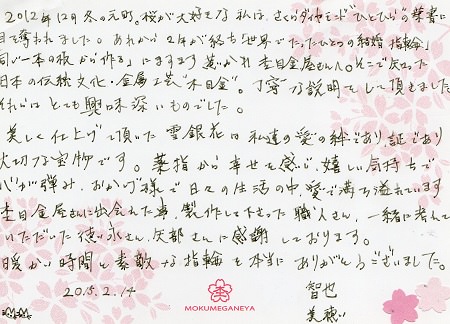 2012年12月冬の元町。桜が大好きな私は、さくらダイヤモンド"ひとひら"の葉書に
目を奪われました。あれから2年が経ち「世界でたったひとつの結婚指輪」
「同じ一本の板から作る」にますます惹かれ杢目金屋さんへ。そこで出会った
日本の伝統文化・金属工芸"木目金"。丁寧な説明をして頂きました
それはとても興味深いものでした。
美しく仕上げて頂いた雪銀花は私達の愛の絆であり証であり
大切な宝物です。薬指から幸せを感じ、嬉しい気持ちで
心が弾み、おかげ様で日々の生活の中愛で満ち溢れています
杢目金屋さんに出会えた事、製作して下さった職人さん、一緒に考えて
いただいた徳永さん、矢部さんに感謝しております。
暖かい時間と素敵な指輪を本当にありがとうございました。
2015.2.14
智也
美穂
MOKUMEGANEYA